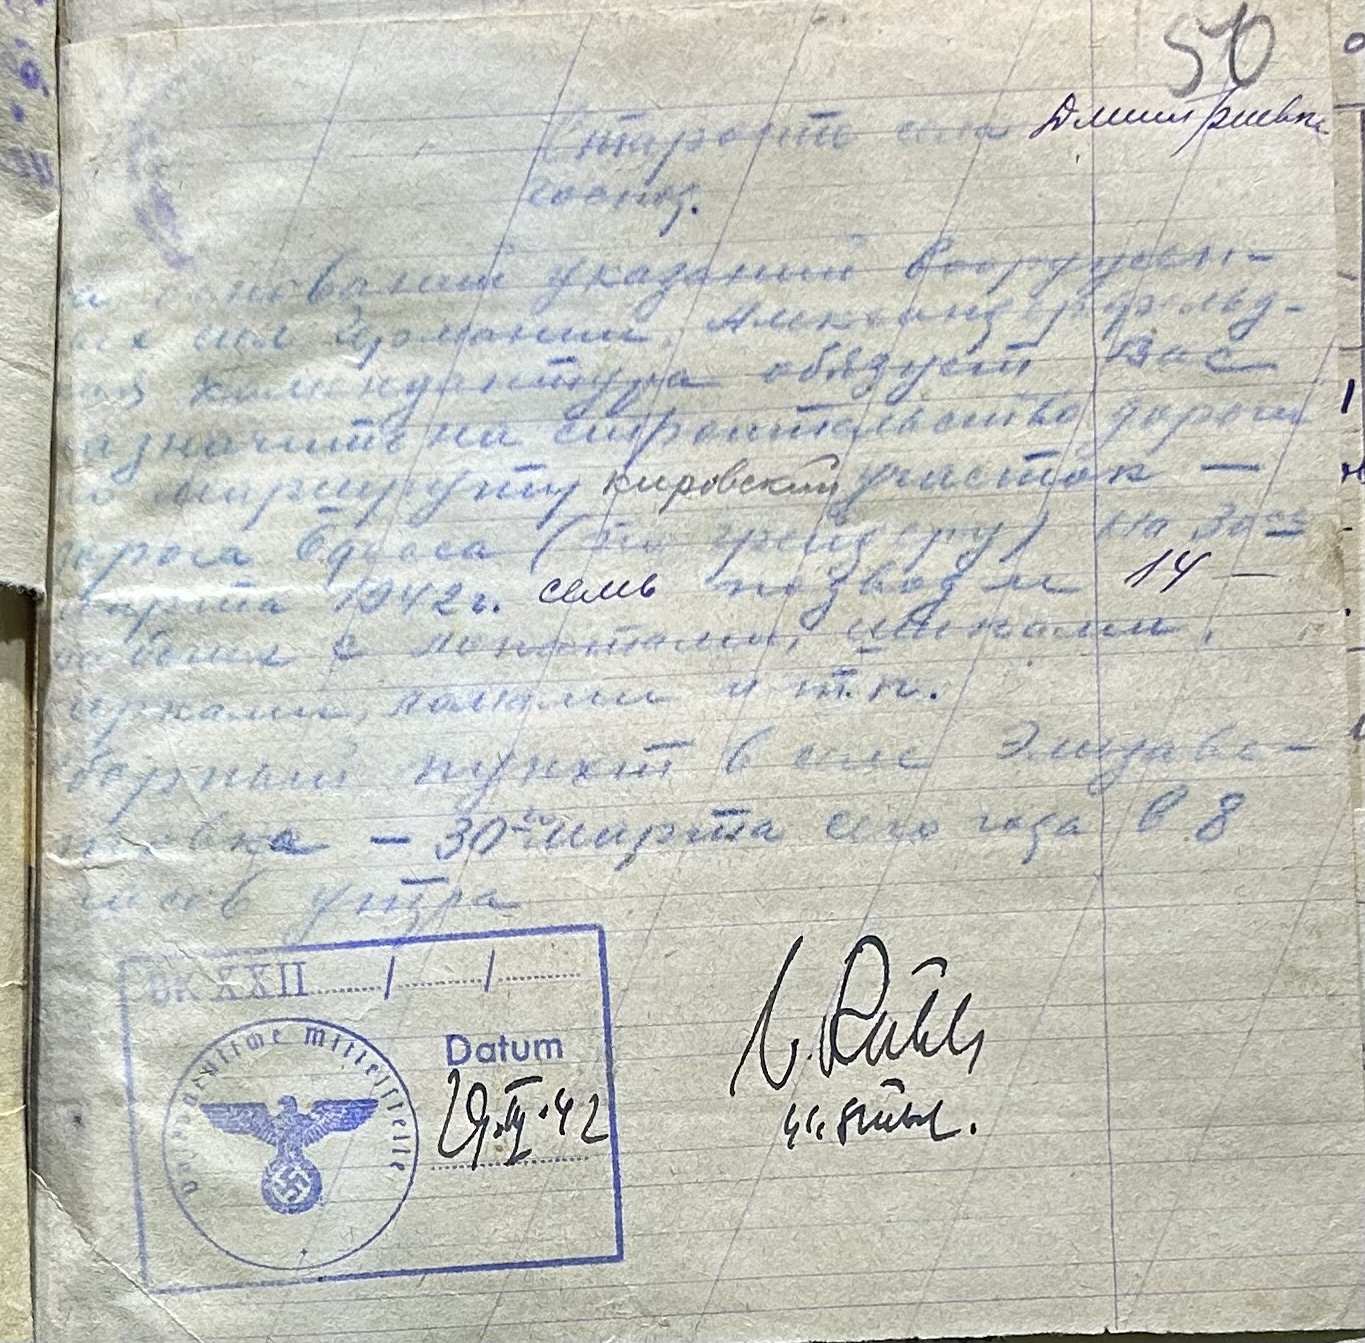 50
Старосте села Дмитриевка
господ.
а основании указаний Вооружен-
ых сил Германии, Александерфельд-
ая комендатура обязует Вас
азначить на строительство дороги
о маршруту Кировский участок —
орога Одесса (по грейдеру) на 30ое
марта 1942 г. семь подвод и 14 —
рабочих с лопатами,
ирками, ломами и т.п.
борный пункт в селе Элизаве-
товка — 30го марта сего года в 8
часов утра
DK XXII / /
Volksdeutsche Mittelstelle
Datum
29.III.42